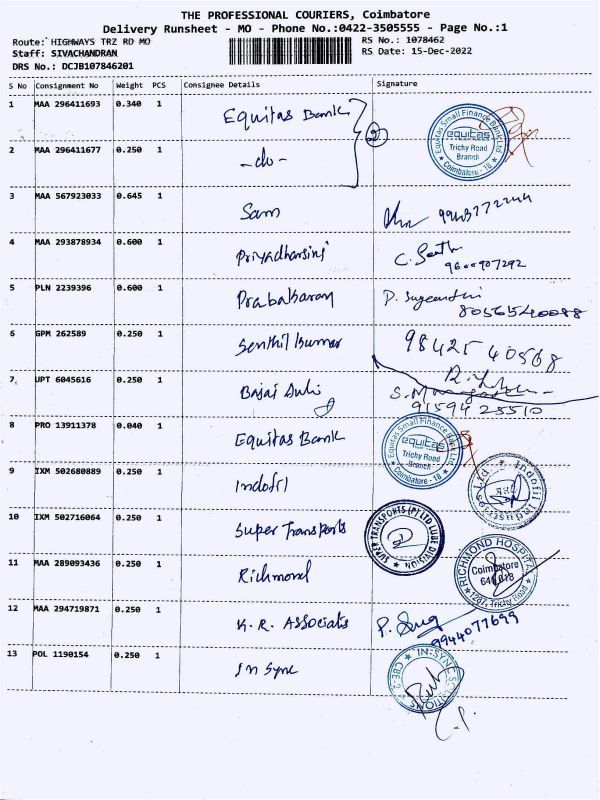 THE PROFESSIONAL COURIERS, Coimbatore
Delivery Runsheet - MO - Phone No.:0422-3505555 - Page No.:1
Route: HIGHWAYS TRZ RD MO
RS No.: 1078462
Staff: SIVACHANDRAN
RS Date: 15-Dec-2022
DRS No.: DCJB107846201
S No Consignment No Weight PCS Consignee Details Signature
1 MAA 296411693 0.340 1 Equitas Bank
2
Equitas Small Finance Bank Ltd
equitas
Trichy Road
Branch
Coimbatore - 18
2 MAA 296411677 0.250 1 -do-
3 MAA 567923033 0.645 1 Sam
4 MAA 293878934 0.600 1 Priyadharsini
9600907292
5 PLN 2239396 0.600 1 Prabakaran
8056540088
6 GPM 262589 0.250 1 Senthil Kumar 98425 40568
7 UPT 6045616 0.250 1 Bajaj
91594 25510
8 PRO 13911378 0.040 1 Equitas Bank
Equitas Small Finance Bank Ltd
equitas
Trichy Road
Branch
Coimbatore - 18
9 IXM 502680889 0.250 1 Indofil
Indofil Industries Ltd.
10 IXM 502716064 0.250 1 Super Transports
SUPER TRANSPORTS (P) LTD LUBE DIVISION
11 MAA 289093436 0.250 1 Richmond
RICHMOND HOSPITAL
Coimbatore
641 018
Trichy Road
12 MAA 294719871 0.250 1 K.R. Associates
9944077699
13 POL 1190154 0.250 1 In Sync
CBE-2